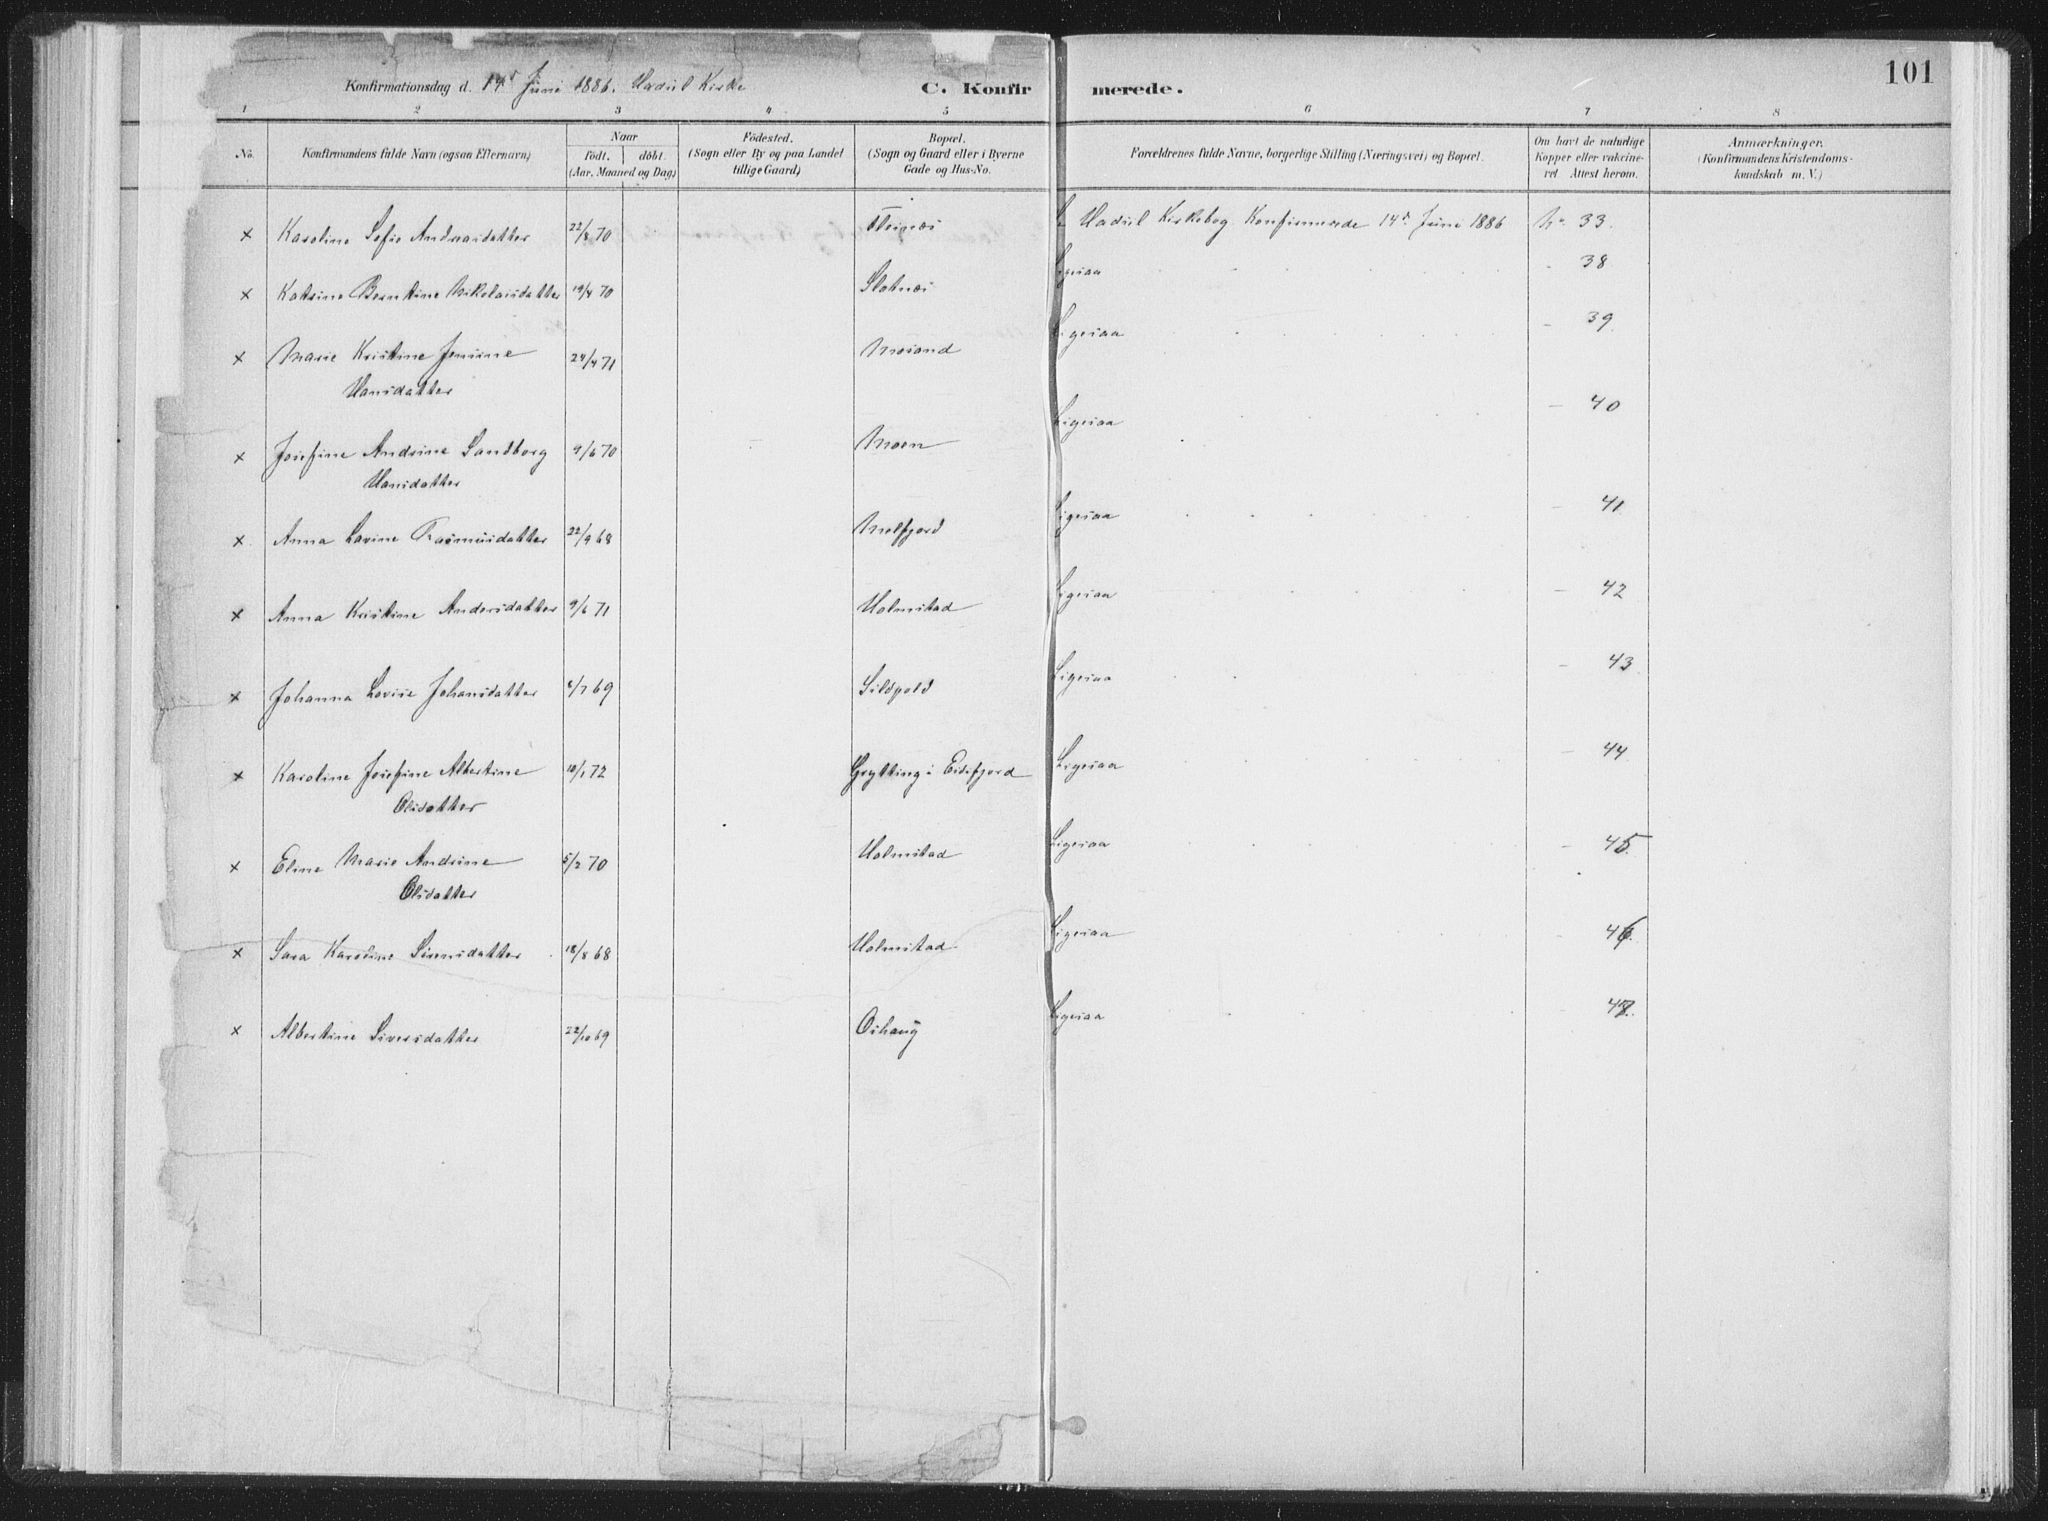 101
Konfirmationsdag d. 14d Juni 1886. Hadsel Kirke C. Konfirmerede.
1 2 3 4 5 6 7 8
No. Konfirmandens fulde Navn (ogsaa Efternavn) Naar Födested. Bopæl. Forældrenes fulde Navne, borgerlige Stilling (Næringsvei) og Bopæl. Om havt de naturlige Anmærkninger.
födt. döbt. (Sogn eller By og paa Landet (Sogn og Gaard eller i Byerne Kopper eller vakcine- (Konfirmandens Kristendoms-
(Aar, Maaned og Dag) tillige Gaard) Gade og Hus-No. ret Attest herom. kundskab m. V.)
x Karoline Sofie Andreasdatter 22/8 70 Fleines Se Hadsel Kirkebog Konfirmerede 14d Juni 1886 No 33.
x Katrine Berntine Nikolaisdatter 19/4 70 Slotnes Ligesaa - 38
x Marie Kristine Jensine 24/4 71 Ligesaa - 39.
Hansdatter
x Josefine Andrine Sandborg 9/6 70 Moen Ligesaa - 40
Hansdatter
x Anna Lavine Rasmusdatter 22/9 68 Melfjord Ligesaa - 41
x Anna Kristine Andersdatter 9/6 71 Holmstad Ligesaa - 42
x Johanna Lovise Johansdatter 6/7 69 Sildpold Ligesaa - 43
x Karoline Josefine Albertine 10/1 72 Grytting i Eidsfjord Ligesaa - 44
Olsdatter
x Eline Marie Andrine 5/2 70 Holmstad Ligesaa - 45
Olsdatter
x Sara Karoline Sivertsdatter 18/8 68 Holmstad Ligesaa - 46.
x Albertine Siversdatter 22/10 69 Oshaug Ligesaa